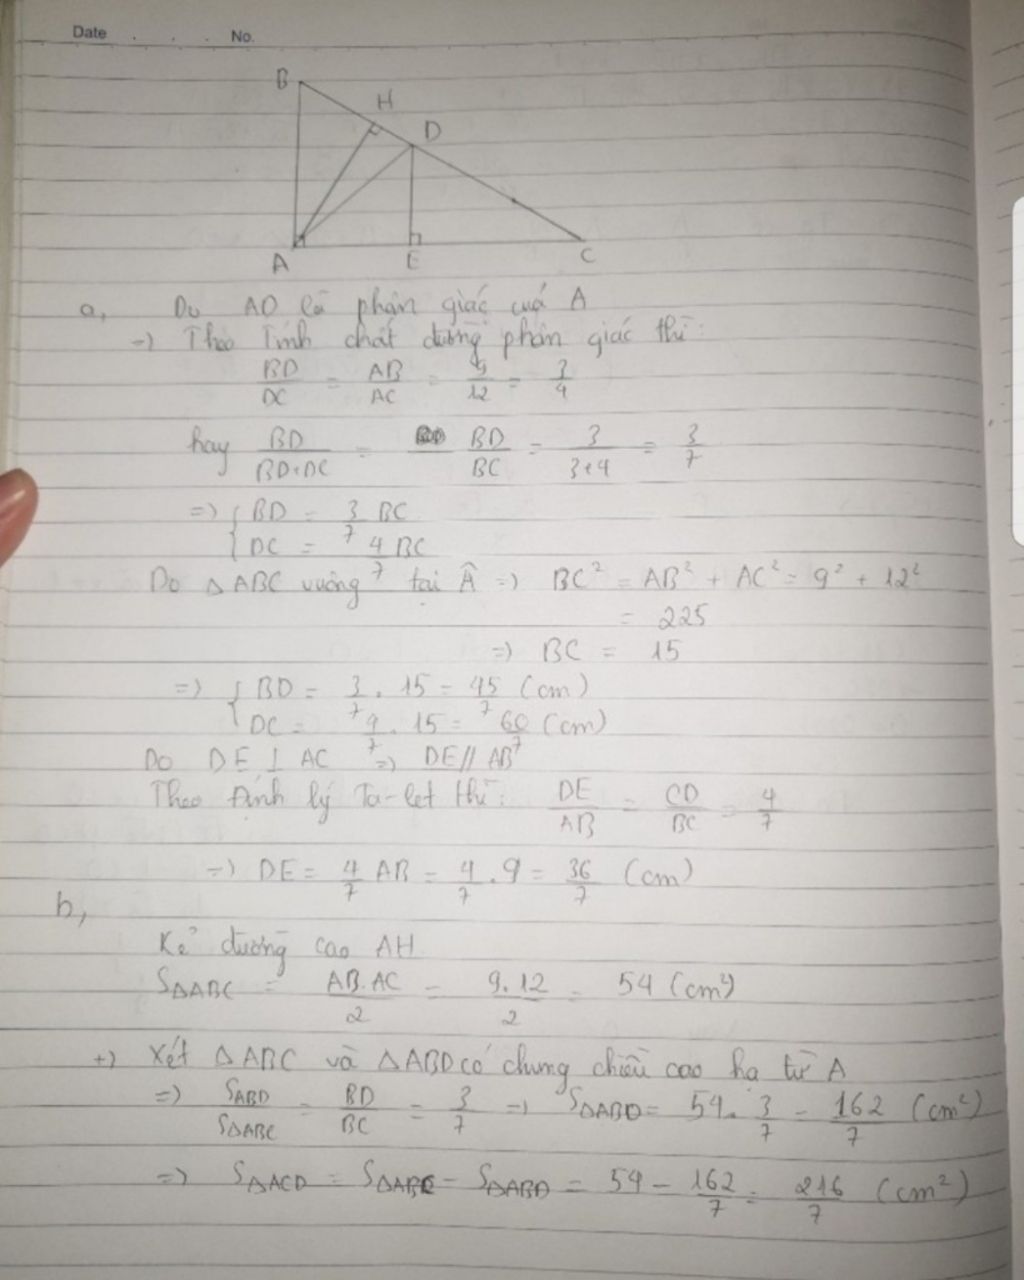 Date . . . No.
B
H
D
A
E
C
a, Do AD là phân giác cuả A
=) Theo Tính chất đường phân giác thì:
BD/DC = AB/AC = 9/12 = 3/4
hay BD/BD+DC = BD/BC = 3/3+4 = 3/7
=) { BD = 3/7 BC
DC = 4/7 BC
Do △ABC vuông tại Â =) BC² = AB² + AC² = 9² + 12²
= 225
=) BC = 15
=) { BD = 3/7 . 15 = 45/7 (cm)
DC = 4/7 . 15 = 60/7 (cm)
Do DE ⊥ AC =) DE // AB
Theo Định lý Ta-let thì: DE/AB = CD/BC = 4/7
=) DE = 4/7 AB = 4/7 . 9 = 36/7 (cm)
b,
Kẻ đường cao AH
S△ABC = AB.AC/2 = 9.12/2 = 54 (cm²)
+) Xét △ABC và △ABD có chung chiều cao hạ từ A
=) SABD/S△ABC = BD/BC = 3/7 =) S△ABD = 54 . 3/7 = 162/7 (cm²)
=) S△ACD = S△ABC - S△ABD = 54 - 162/7 = 216/7 (cm²)